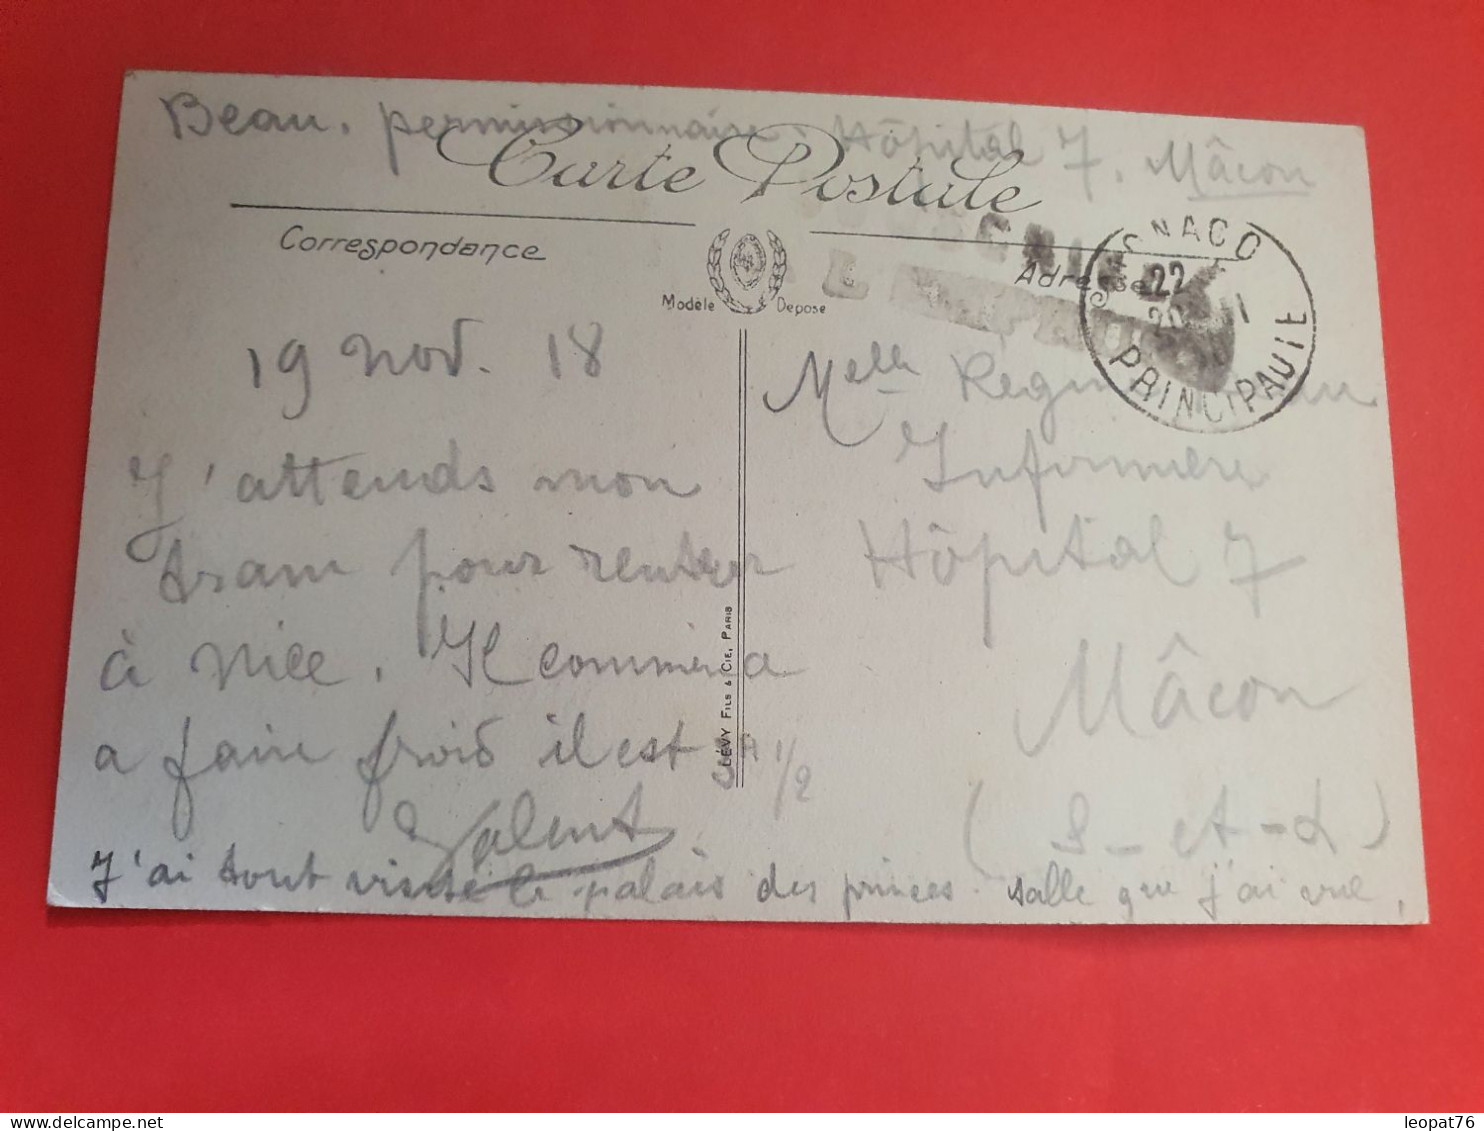 Beau. permissionnaire. Hôpital 7. Mâcon
Carte Postale
Correspondance
Modèle Déposé
Adresse
MONACO
22
20 - 11
PRINCIPAUTE
19 nov. 18
J'attends mon
tram pour rentrer
à Nice. Il commença
a faire froid il est 3h 1/2
Valent
J'ai tout visité le palais des princes. salle que j'ai vue.
Melle
Infirmière
Hôpital 7
Mâcon
(S-et-L)
LÉVY FILS & CIE, PARIS
leopat76